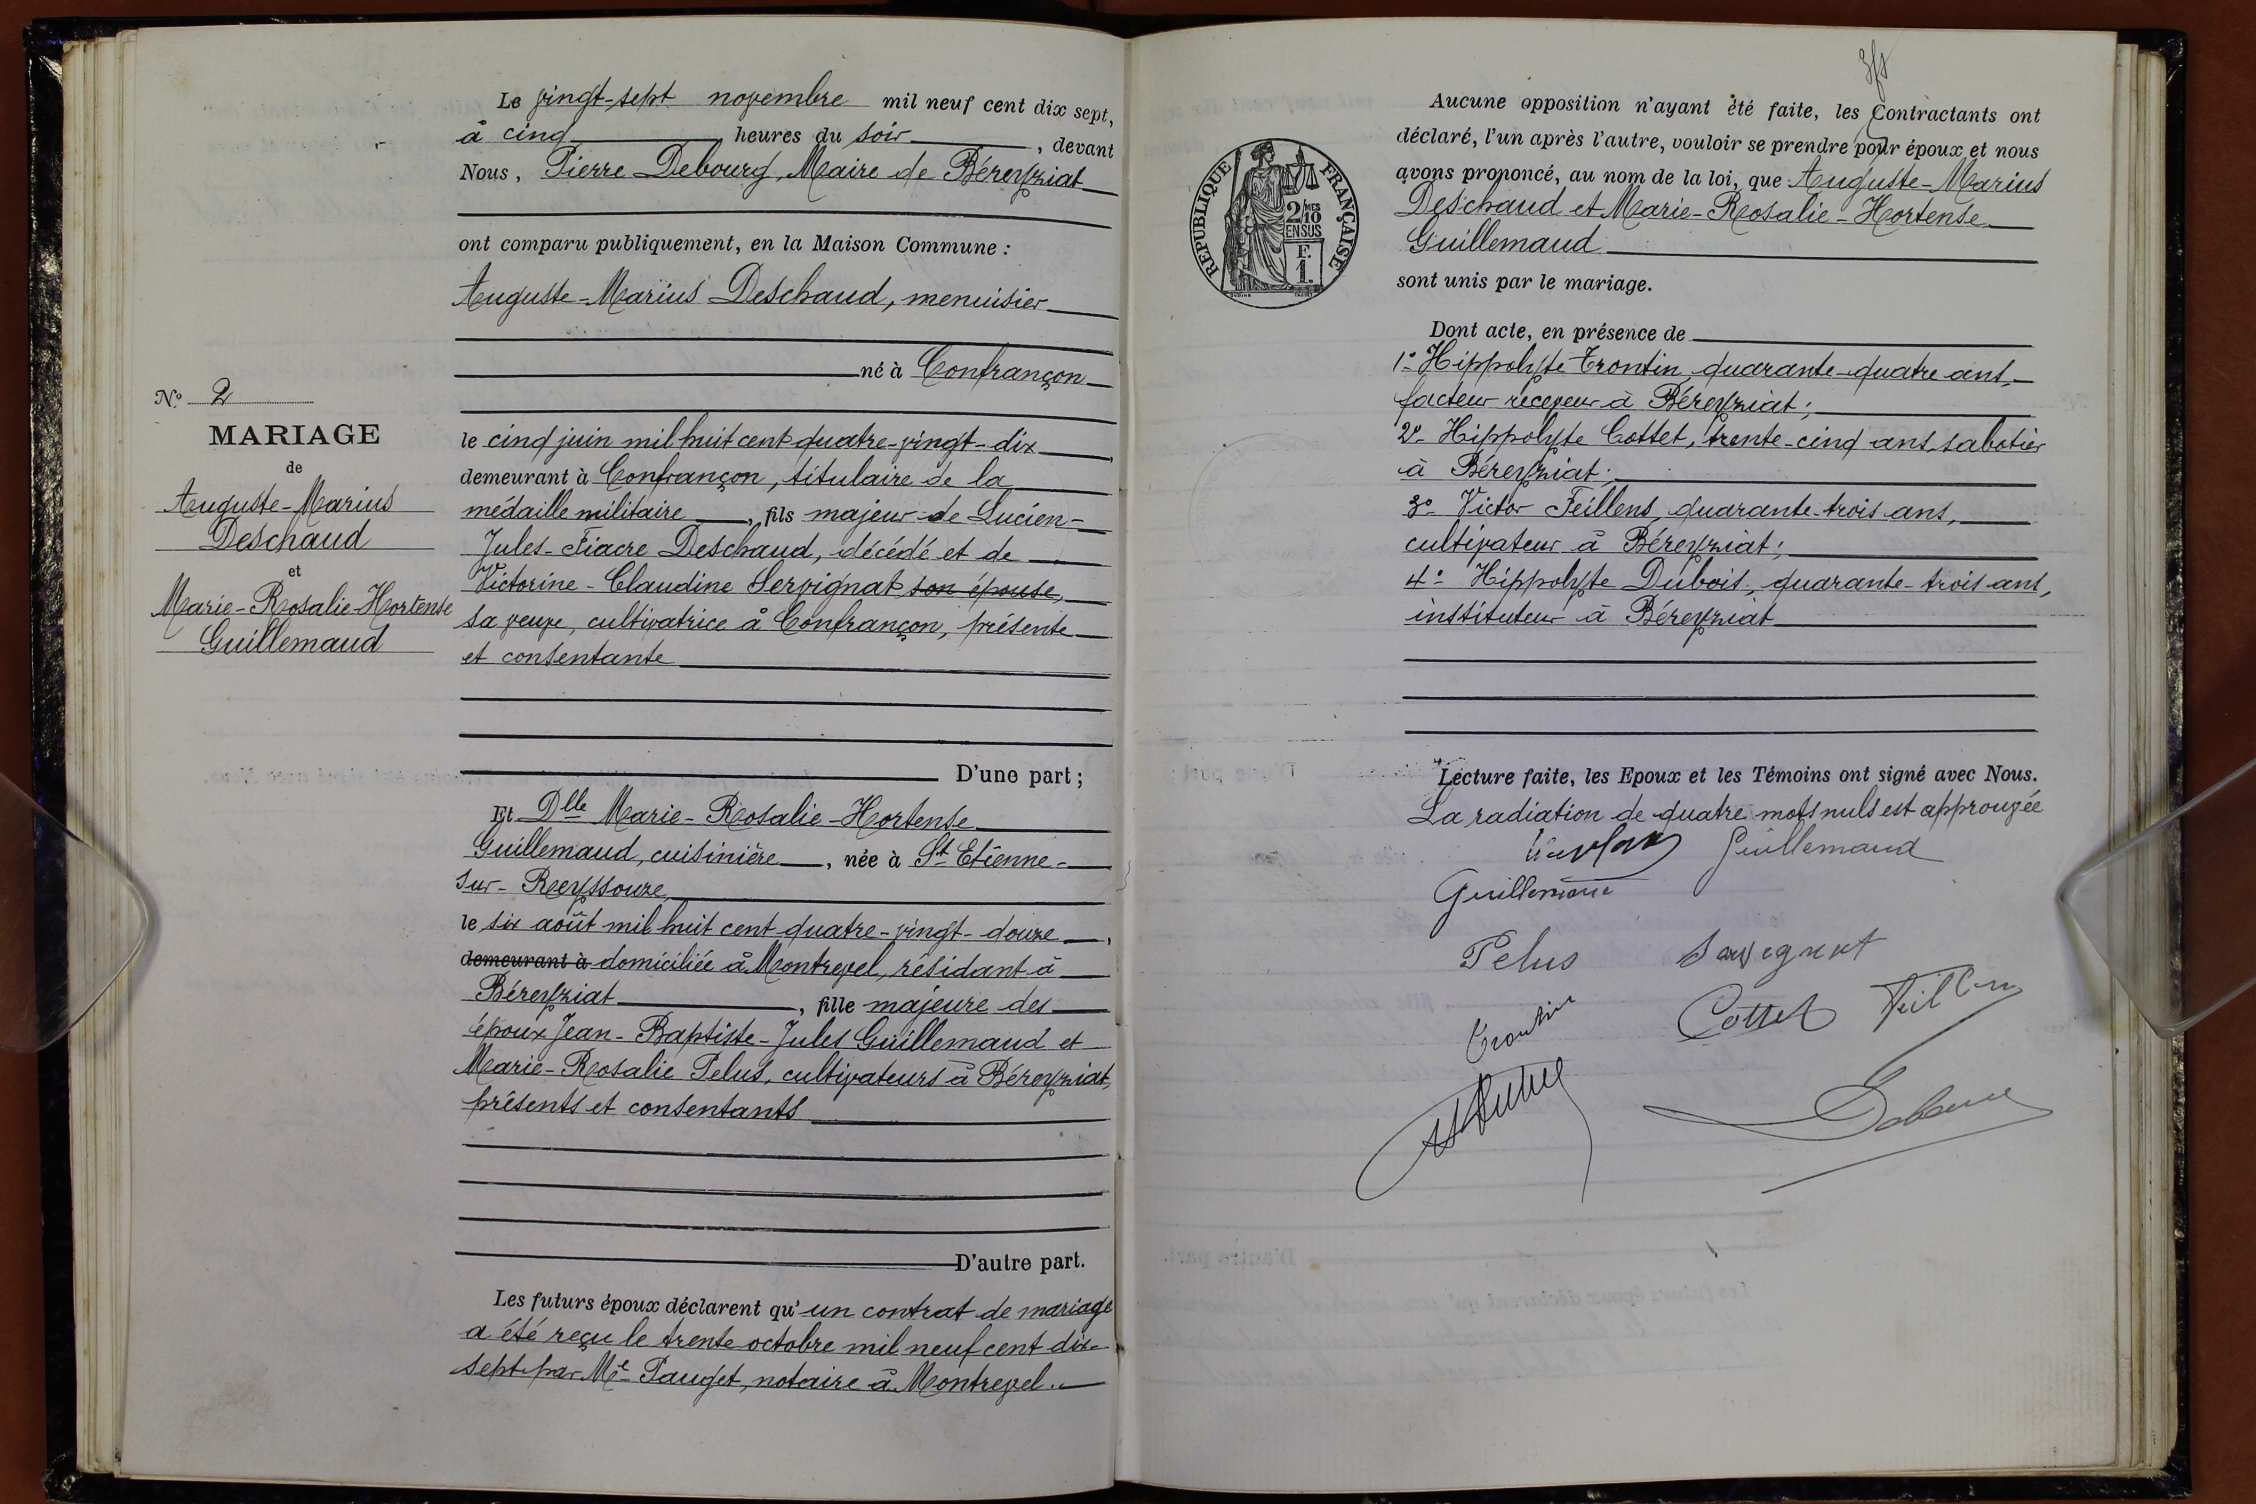 Le vingt-sept novembre mil neuf cent dix sept,
à cinq heures du soir, devant
Nous, Pierre Debourg, Maire de Béreyziat
ont comparu publiquement, en la Maison Commune :
Auguste-Marius Deschaud, menuisier
né à Confrançon
le cinq juin mil huit cent quatre-vingt-dix,
demeurant à Confrançon, titulaire de la
médaille militaire, fils majeur de Lucien-
Jules-Fiacre Deschaud, décédé et de
Victorine-Claudine Servignat son épouse,
sa veuve, cultivatrice à Confrançon, présente
et consentante
D'une part ;
Et Dlle Marie-Rosalie-Hortense
Guillemaud, cuisinière, née à St Etienne-
sur-Reyssouze,
le six août mil huit cent quatre-vingt-douze,
demeurant à domiciliée à Montrevel, résidant à
Béreyziat, fille majeure des
époux Jean-Baptiste-Jules Guillemaud et
Marie-Rosalie Pelus, cultivateurs à Béreyziat,
présents et consentants
D'autre part.
Les futurs époux déclarent qu'un contrat de mariage
a été reçu le trente octobre mil neuf cent dix-
sept par Me Pauget, notaire à Montrevel.
No 2
MARIAGE
de
Auguste-Marius
Deschaud
et
Marie-Rosalie-Hortense
Guillemaud
REPUBLIQUE FRANÇAISE
2/10MES
EN SUS
F.
1.
Aucune opposition n'ayant été faite, les Contractants ont
déclaré, l'un après l'autre, vouloir se prendre pour époux et nous
avons prononcé, au nom de la loi, que Auguste-Marius
Deschaud et Marie-Rosalie-Hortense
Guillemaud
sont unis par le mariage.
Dont acte, en présence de
1° Hippolyte Trontin, quarante-quatre ans,
facteur receveur à Béreyziat ;
2° Hippolyte Cottet, trente-cinq ans, sabotier
à Béreyziat ;
3° Victor Feillens, quarante-trois ans,
cultivateur à Béreyziat ;
4° Hippolyte Dubois, quarante-trois ans,
instituteur à Béreyziat
Lecture faite, les Epoux et les Témoins ont signé avec Nous.
La radiation de quatre mots nuls est approuvée
Guillemaud
Guillemaud
Pelus Servignat
Trontin Cottet Feillens